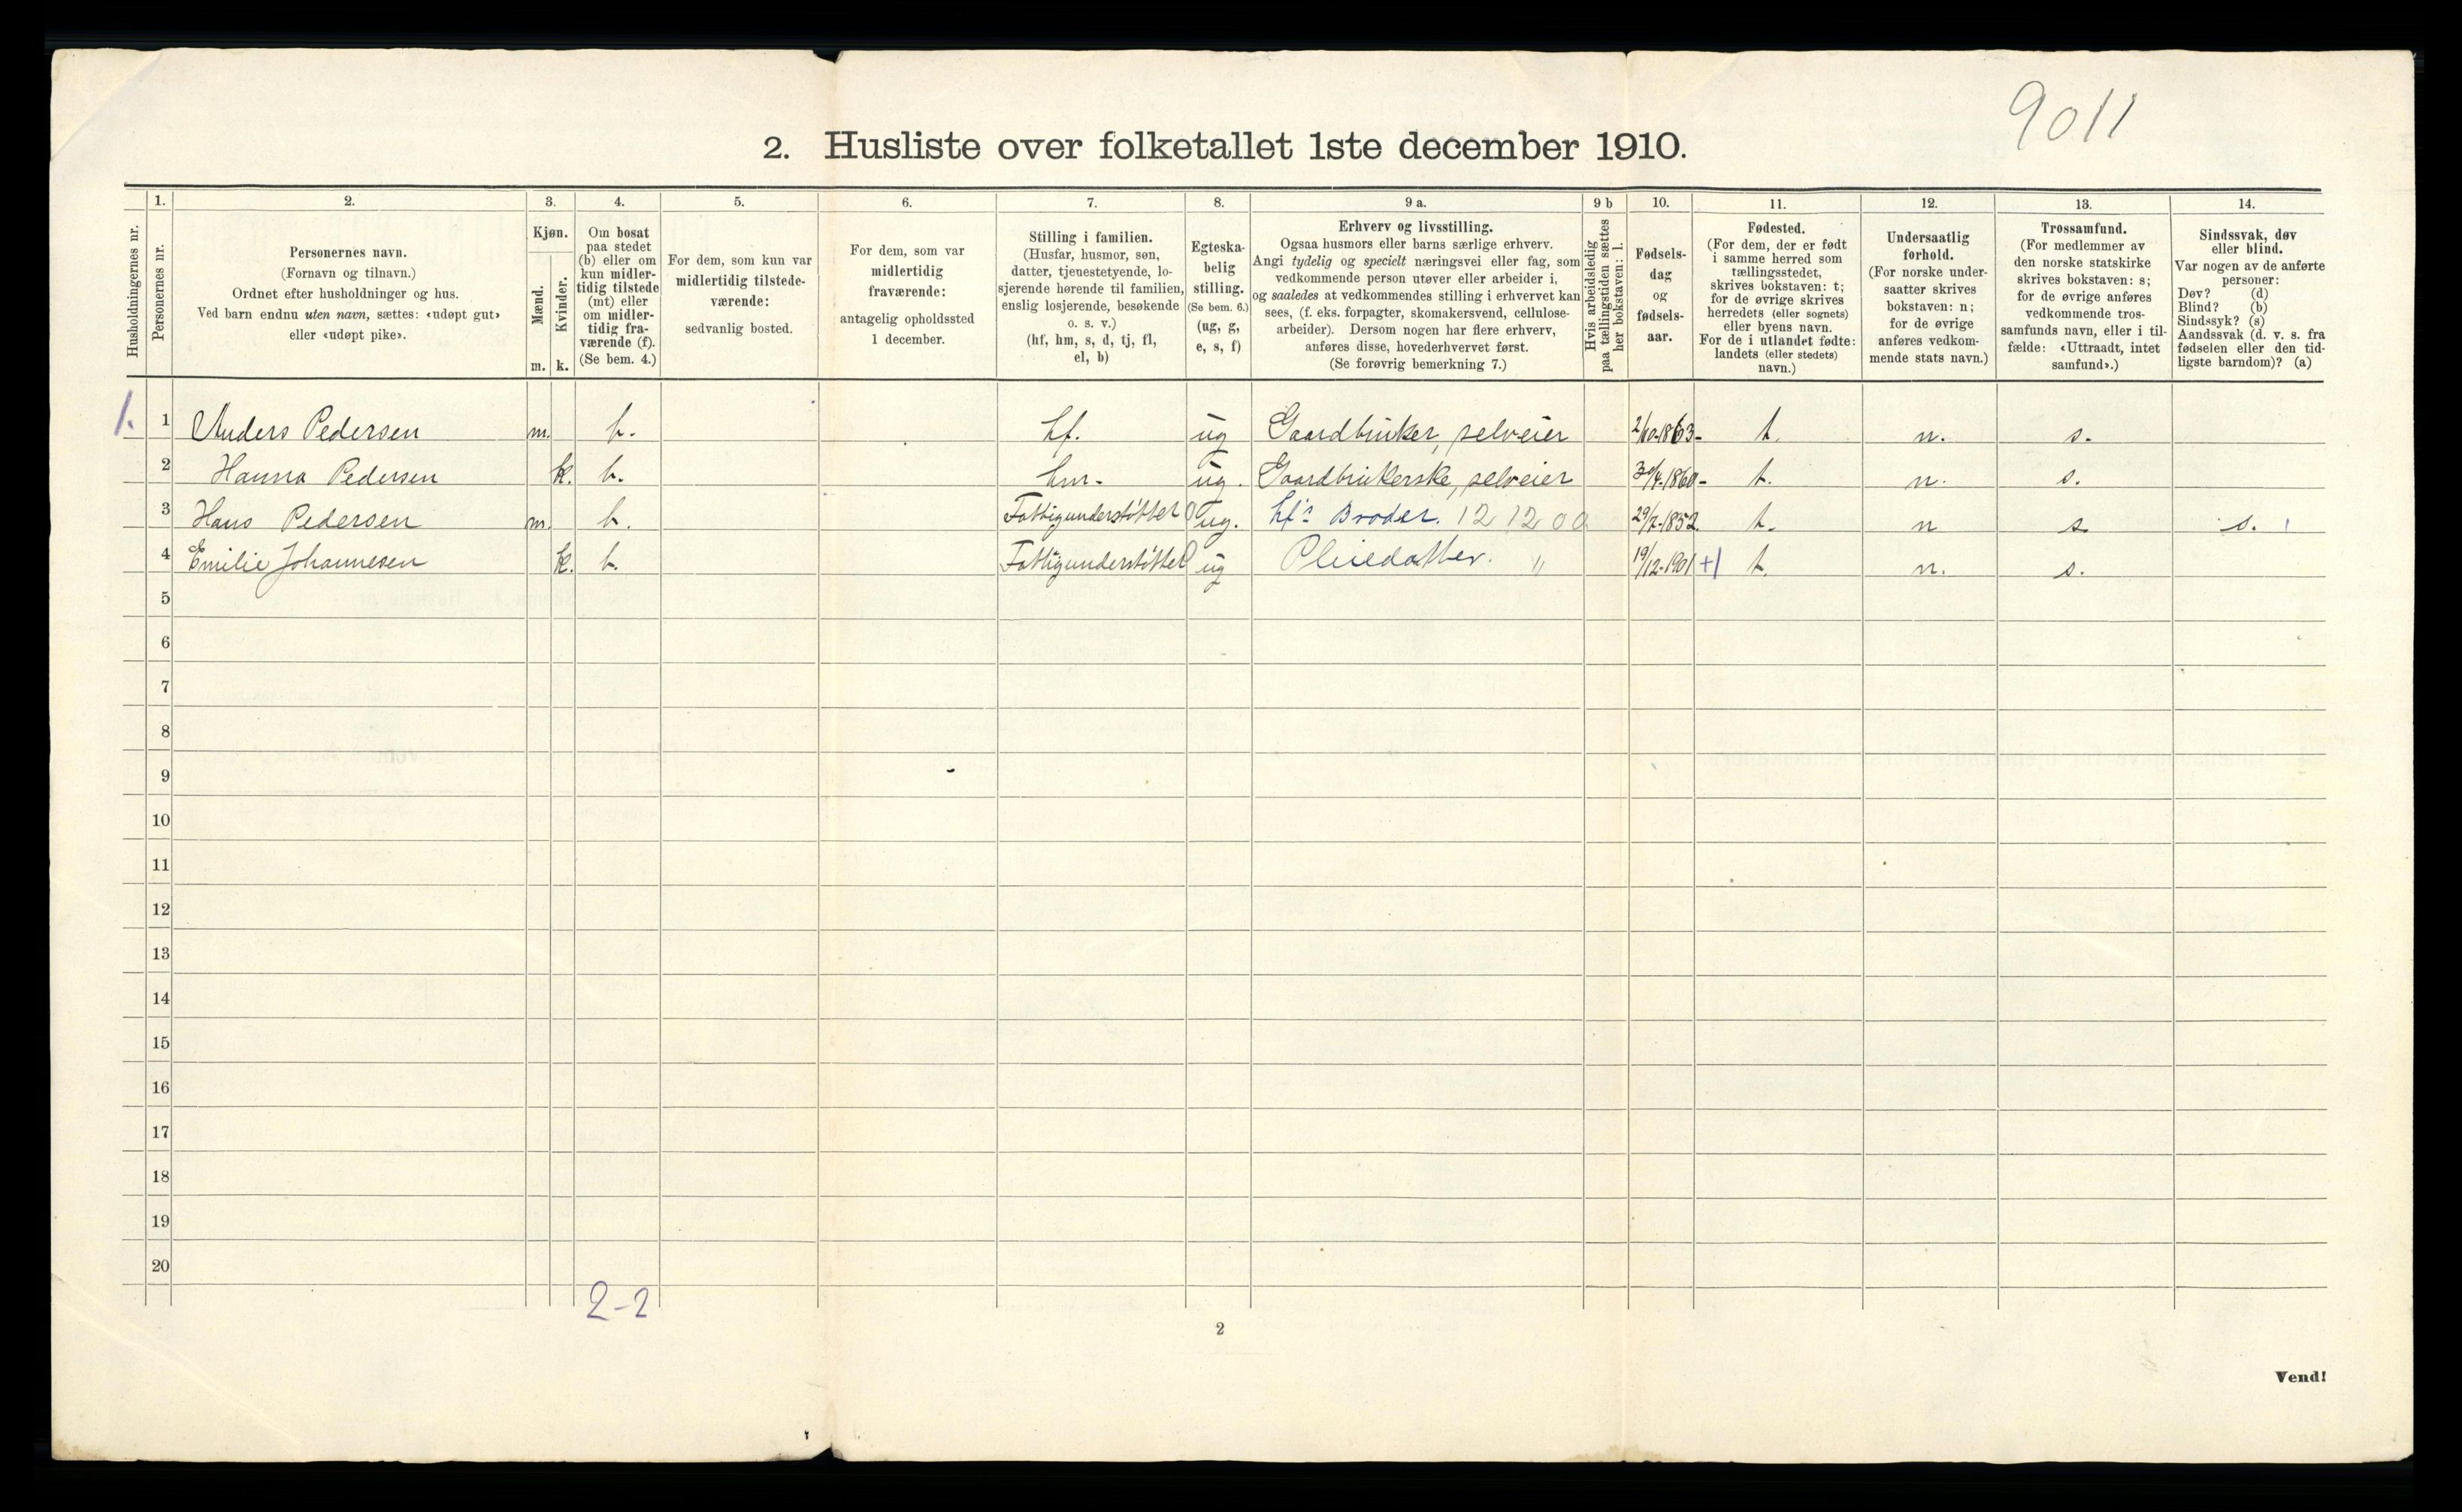 9011
2. Husliste over folketallet 1ste december 1910.
Husholdningernes nr.
1.
Personernes nr.
2.
Personernes navn.
(Fornavn og tilnavn.)
Ordnet efter husholdninger og hus.
Ved barn endnu uten navn, sættes: «udøpt gut»
eller «udøpt pike».
3.
Kjøn.
Mænd.
Kvinder.
m. k.
4.
Om bosat
paa stedet
(b) eller om
kun midler-
tidig tilstede
(mt) eller
om midler-
tidig fra-
værende (f).
(Se bem. 4.)
5.
For dem, som kun var
midlertidig tilstede-
værende:
sedvanlig bosted.
6.
For dem, som var
midlertidig
fraværende:
antagelig opholdssted
1 december.
7.
Stilling i familien.
(Husfar, husmor, søn,
datter, tjenestetyende, lo-
sjerende hørende til familien,
enslig losjerende, besøkende
o. s. v.)
(hf, hm, s, d, tj, fl,
el, b)
8.
Egteska-
belig
stilling.
(Se bem. 6.)
(ug, g,
e, s, f)
9 a.
Erhverv og livsstilling.
Ogsaa husmors eller barns særlige erhverv.
Angi tydelig og specielt næringsvei eller fag, som
vedkommende person utøver eller arbeider i,
og saaledes at vedkommendes stilling i erhvervet kan
sees, (f. eks. forpagter, skomakersvend, cellulose-
arbeider). Dersom nogen har flere erhverv,
anføres disse, hovederhvervet først.
(Se forøvrig bemerkning 7.)
9 b
Hvis arbeidsledig
paa tællingstiden sættes
her bokstaven: l.
10.
Fødsels-
dag
og
fødsels-
aar.
11.
Fødested.
(For dem, der er født
i samme herred som
tællingsstedet,
skrives bokstaven: t;
for de øvrige skrives
herredets (eller sognets)
eller byens navn.
For de i utlandet fødte:
landets (eller stedets)
navn.)
12.
Undersaatlig
forhold.
(For norske under-
saatter skrives
bokstaven: n;
for de øvrige
anføres vedkom-
mende stats navn.)
13.
Trossamfund.
(For medlemmer av
den norske statskirke
skrives bokstaven: s;
for de øvrige anføres
vedkommende tros-
samfunds navn, eller i til-
fælde: «Uttraadt, intet
samfund».)
14.
Sindssvak, døv
eller blind.
Var nogen av de anførte
personer:
Døv? (d)
Blind? (b)
Sindssyk? (s)
Aandssvak (d. v. s. fra
fødselen eller den tid-
ligste barndom)? (a)
1. 1 Anders Pedersen m. b. hf. ug Gaardbruker, selveier 2/10-1863- t. n. s.
2 Hanna Pedersen k. b. hm. ug. Gaardbrukerske, selveier 30/4-1860- t. n. s.
3 Hans Pedersen m. b. Fattigunderstøttet ug. hf's Broder. 12 12 00 29/7-1852 t. n s. s.
4 Emilie Johannesen k. b. Fattigunderstøttet ug Pleiedatter. " 19/12-1901 +1 t. n. s.
5
6
7
8
9
10
11
12
13
14
15
16
17
18
19
20
2-2
2
Vend!